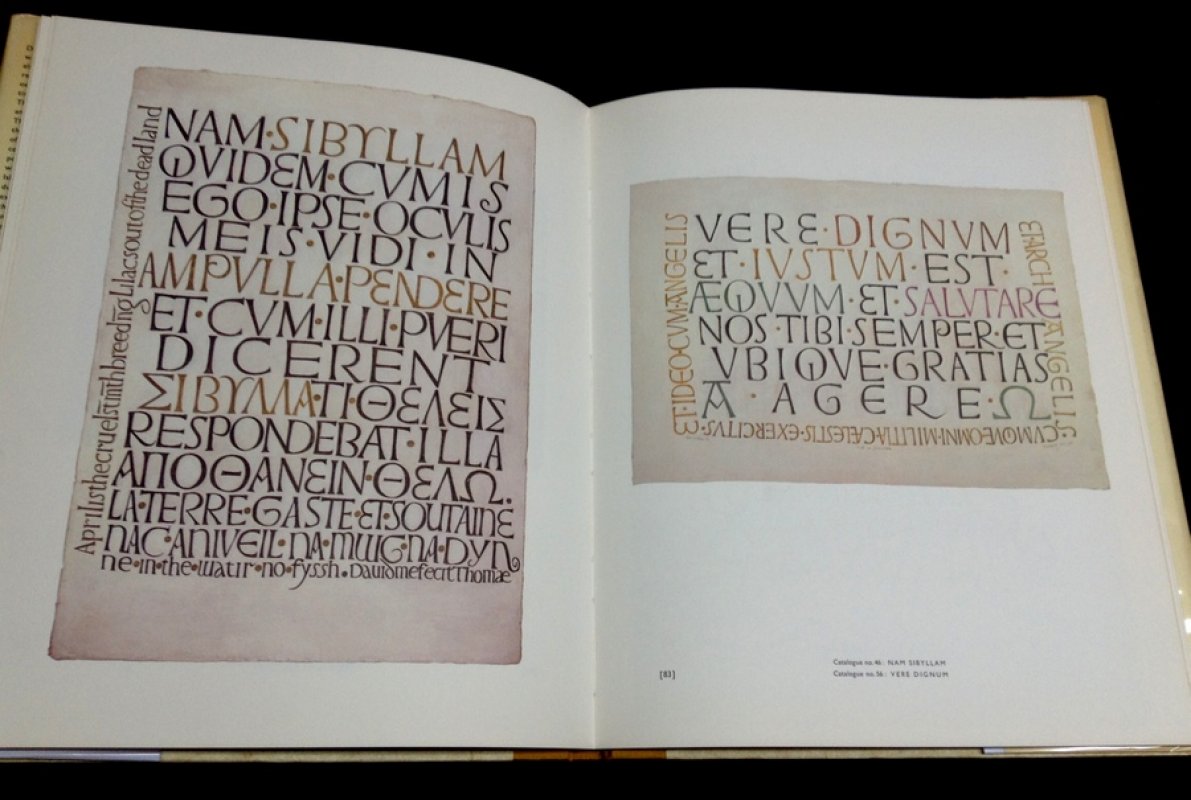 NAM·SIBYLLAM
QVIDEM·CVMIS
EGO·IPSE·OCVLIS
MEIS·VIDI·IN
AMPVLLA·PENDERE
ET·CVM·ILLI·PVERI
DICERENT
ΣΙΒΥΛΛΑ·ΤΙ·ΘΕΛΕΙΣ
RESPONDEBAT·ILLA
ΑΠΟΘΑΝΕΙΝ·ΘΕΛΩ.
LA·TERRE·GASTE·ET·SOUTAINE
NAC·ANIVEIL·NA·MWG·NA·DYN
ne·in·the·watir·no·fyssh·Dauidmefecit Thomae
Aprilisthecruelstm̄thbreedin̄gLilacsoutofthedeadland
VERE·DIGNVM
ET·IVSTVM·EST·
ÆQVVM·ET·SALVTARE
NOS·TIBI·SEMPER·ET
VBIQVE·GRATIAS
A·AGERE·Ω
ET·IDEO·CVM·ANGELIS
ET·ARCHANGELIS·
CVMQVE·OMNI·MILITIA·CÆLESTIS·EXERCITVS·
[83]
Catalogue no.46: NAM SIBYLLAM
Catalogue no.56: VERE DIGNUM